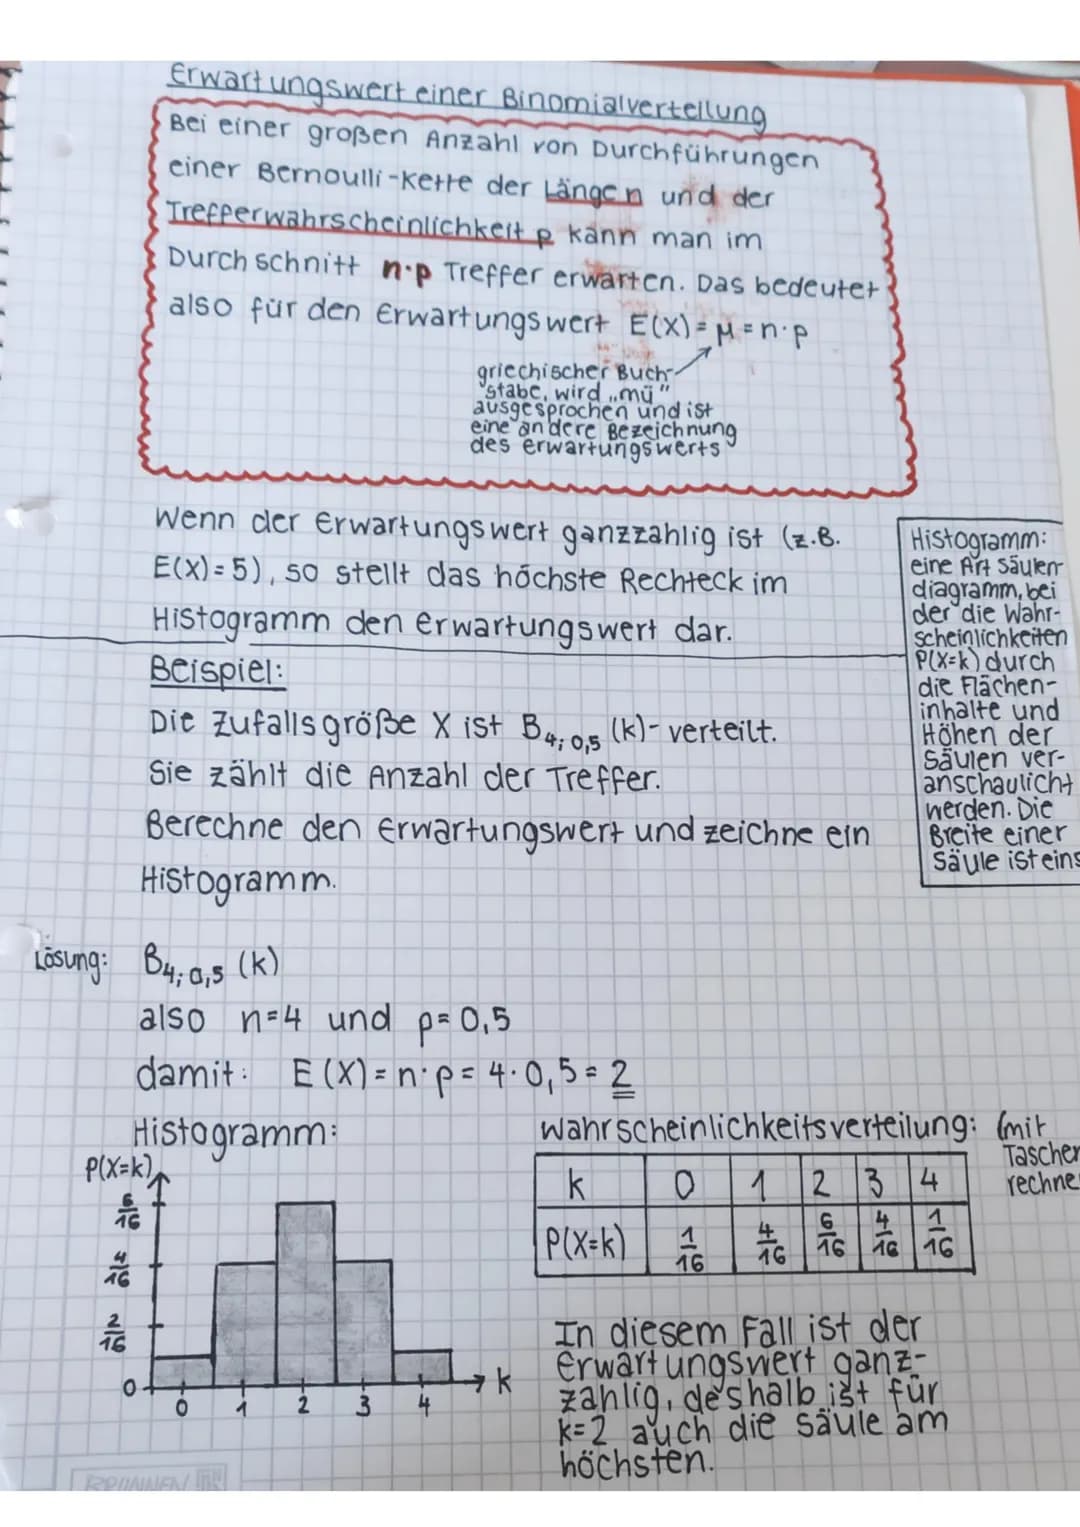 Erwartungswert einer Binomialverteilung
Bei einer großen Anzahl von Durchführungen
einer Bernoulli-Kette der Längen und der
Trefferwahrscheinlichkeit p kann man im
Durchschnitt n·p Treffer erwarten. Das bedeutet
also für den Erwartungswert E(X)=μ=n·p
griechischer Buch-
stabe, wird „mü"
ausgesprochen und ist
eine andere Bezeichnung
des Erwartungswerts
Wenn der Erwartungswert ganzzahlig ist (z.B.
E(X)=5), so stellt das höchste Rechteck im
Histogramm den Erwartungswert dar.
Histogramm:
eine Art Säulen-
diagramm, bei
der die Wahr-
scheinlichkeiten
P(X=k) durch
die Flächen-
inhalte und
Höhen der
Säulen ver-
anschaulicht
werden. Die
Breite einer
Säule ist eins
Beispiel:
Die Zufallsgröße X ist B4;0,5 (k)-verteilt.
Sie zählt die Anzahl der Treffer.
Berechne den Erwartungswert und zeichne ein
Histogramm.
Lösung: B4;0,5 (k)
also n=4 und p=0,5
damit: E(X)=n·p=4·0,5=2
Histogramm:
P(X=k)
6/16
4/16
2/16
0
0 1 2 3 4
k
Wahrscheinlichkeitsverteilung: (mit
Taschen
rechner
k 0 1 2 3 4
P(X=k) 1/16 4/16 6/16 4/16 1/16
In diesem Fall ist der
Erwartungswert ganz-
zahlig, deshalb ist für
k=2 auch die Säule am
höchsten.
BRUNNEN